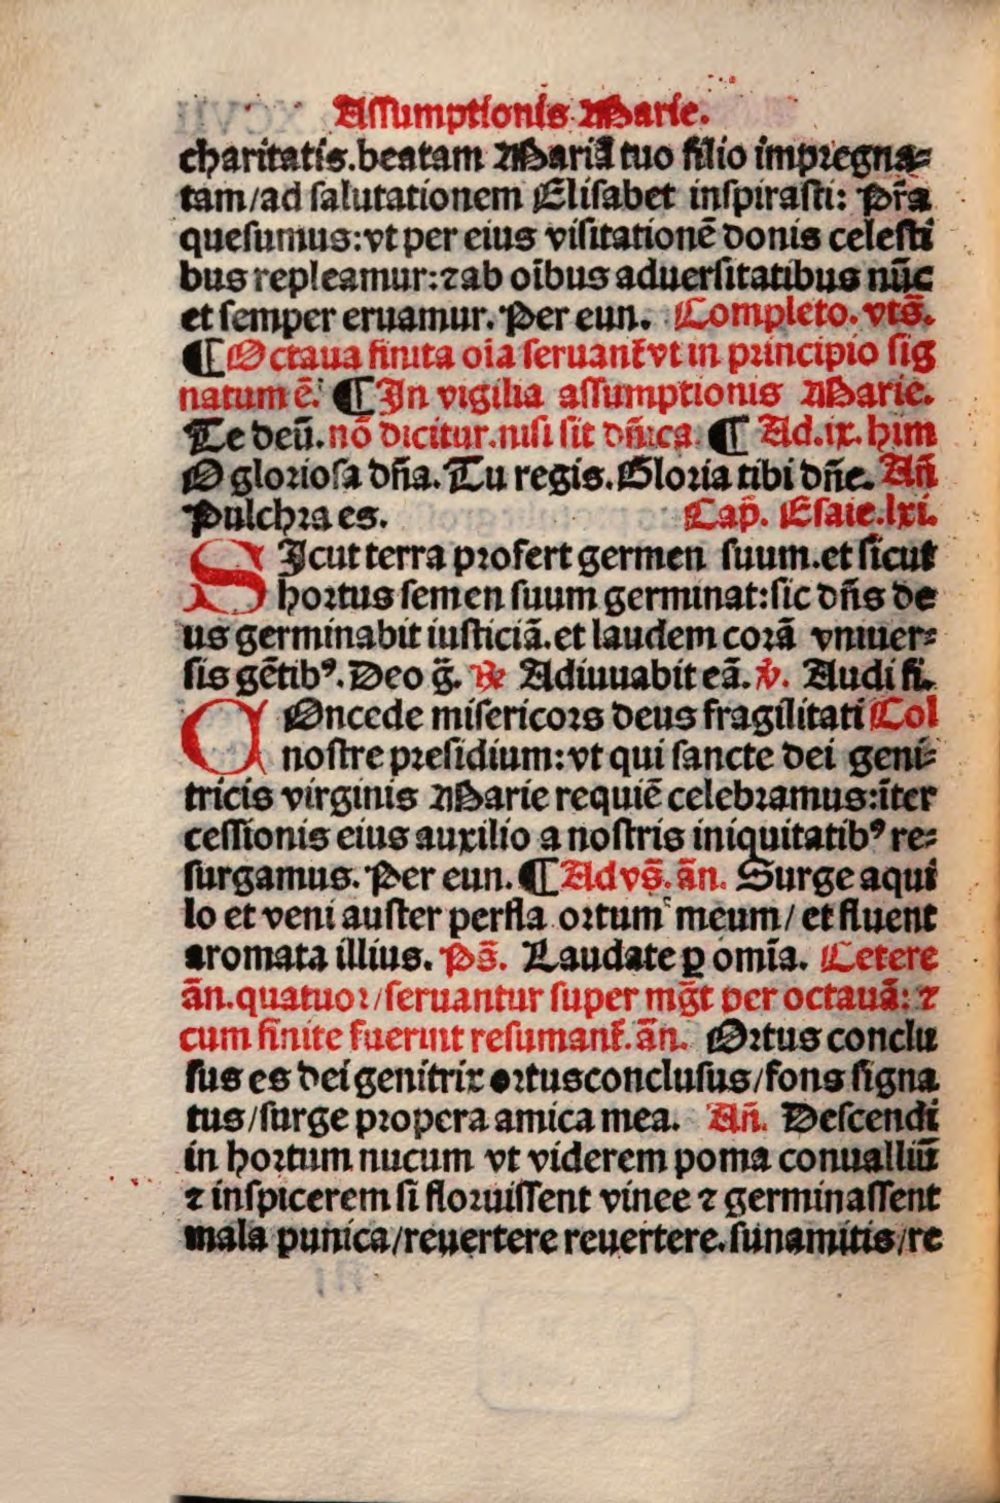 Assumptionis Marie.
charitatis.beatam Mariã tuo filio impregna⸗
tam/ad salutationem Elisabet inspirasti: Pr̃a
quesumus:vt per eius visitationẽ donis celesti
bus repleamur:⁊ ab oĩbus aduersitatibus nũc
et semper eruamur. Per eun. Completo. vts̃.
¶ Octaua finita oĩa seruant᷑ vt in principio sig
natum ẽ. ¶ In vigilia assumptionis Marie.
Te deũ. nõ dicitur. nisi sit dñica. ¶ Ad.ix. him
O gloriosa dña. Tu regis. Gloria tibi dñe. Añ
Pulchra es. Cap̃. Esaie.lxi.
SIcut terra profert germen suum.et sicut
hortus semen suum germinat:sic dñs de
us germinabit iusticiã.et laudem corã vniuer⸗
sis gẽtibꝰ. Deo g̃. ℟ Adiuuabit eã. ℣. Audi fi.
COncede misericors deus fragilitati Col
nostre presidium:vt qui sancte dei geni⸗
tricis virginis Marie requiẽ celebramus:ĩter
cessionis eius auxilio a nostris iniquitatibꝰ re⸗
surgamus. Per eun. ¶ Ad vs̃. ãn. Surge aqui
lo et veni auster perfla ortum meum/ et fluent
aromata illius. Ps̃. Laudate ꝑ omĩa. Cetere
ãn.quatuor/seruantur super mg̃t per octauã: ⁊
cum finite fuerint resumant᷑. ãn. Ortus conclu
sus es dei genitrix ortusconclusus/fons signa
tus/surge propera amica mea. Añ. Descendi
in hortum nucum vt viderem poma conualliũ
⁊ inspicerem si floruissent vinee ⁊ germinassent
mala punica/reuertere reuertere.sunamitis/re